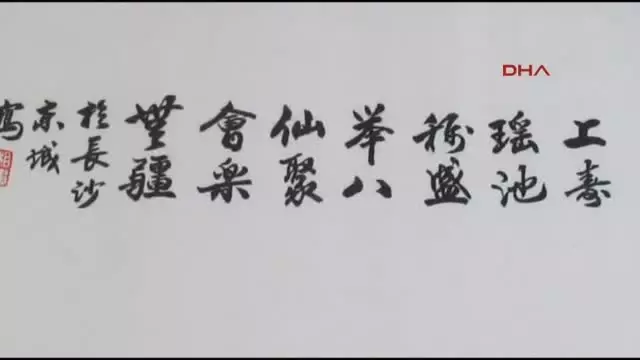 DHA
上寿
瑶池
稱盛
举八
仙聚
會樂
無疆
於長沙
京城
寫